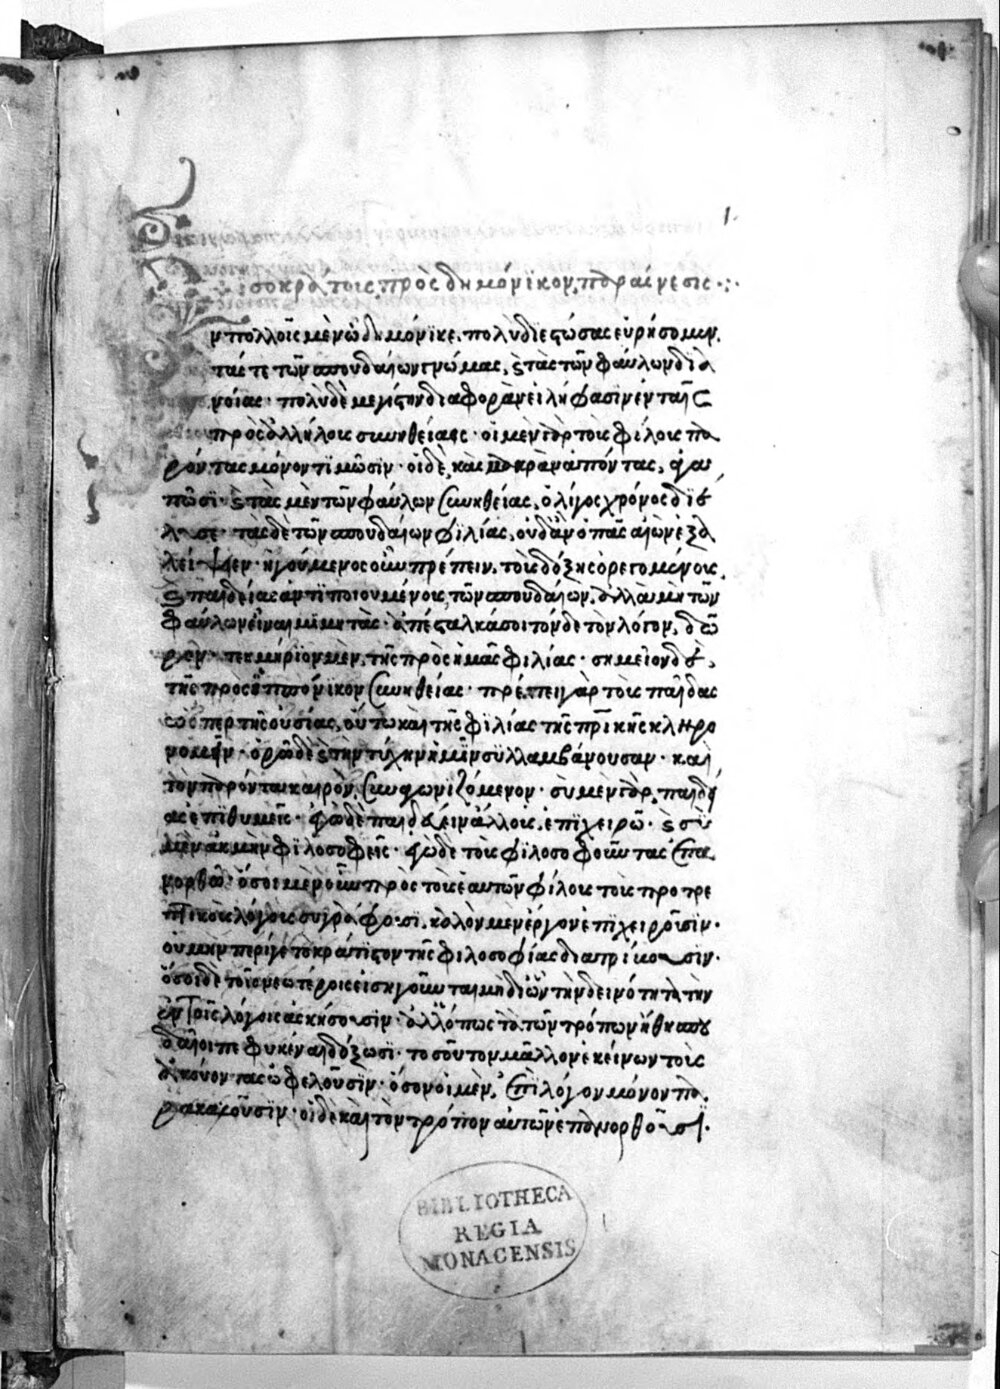 1.
ἰσοκράτους πρὸς δημόνικον, παραίνεσις .:.
ν πολλοῖς μὲν ὦ δημόνϊκε, πολὺ διεστώσας εὑρήσομεν,
τάς τε τῶν σπουδαίων γνώμας, καὶ τὰς τῶν φαύλων δια
νοίας · πολὺ δὲ μεγίστην διαφορὰν εἰλήφασϊν ἐν ταῖς
πρὸς ἀλλήλους συνηθείαις · οἱ μεν γὰρ τοὺς φίλους πα
ρόντας μόνον τϊμῶσϊν · οἱ δὲ, καὶ μακρὰν ἀπόντας, ἀγα
πῶσϊ · καὶ τὰς μὲν τῶν φαύλων συνηθείας, ὀλίγος χρόνος διέ
λυσε · τὰς δὲ τῶν σπουδαίων φϊλίας, οὐδ' ἂν ὁ πᾶς αἰὼν ἐξα
λείψϊεν · ἡγούμενος οὖν πρέπειν, τοὺς δόξης ὀρεγομένους,
καὶ παιδείας ἀντϊποιουμένους, τῶν σπουδαίων, ἀλλὰ μὴ τῶν
φαύλων εἶναι μϊμητὰς · ἀπέσταλκά σοι τόνδε τὸν λόγον, δῶ
ρον · τεκμήριον μὲν, τῆς πρὸς ἡμᾶς φιλίας · σημεῖον δέ,
τῆς πρὸς ἱππόνϊκον συνηθείας · πρέπει γὰρ τοὺς παῖδας
ὥσπερ τῆς οὐσίας, οὕτω καὶ τῆς φϊλίας τῆς πρικῆς κληρο
νομεῖν · ὁρῶ δὲ καὶ τὴν τύχην ἡμῖν συλλαμβάνουσαν · καὶ
τὸν παρόντα καιρὸν, συναγωνϊζόμενον · σὺ μὲν γὰρ, παιδεί
ας ἐπϊθυμεῖς · ἐγὼ δὲ παιδεύειν ἄλλους, ἐπϊχειρῶ · καὶ σοὶ
μὲν ἀκμὴν φϊλοσοφεῖς · ἐγὼ δὲ τοὺς φϊλοσοφοῦντας ἐπα
νορθῶ · ὅσοι μὲν οὖν πρὸς τοὺς ἑαυτῶν φίλους τοὺς προτρε
πτικοὺς λόγους συγράφουσϊ, καλὸν μεν ἔργον ἐπϊχειροῦσϊν ·
οὐ μὴν περί γε τὸ κράτϊστον τῆς φϊλοσοφίας διατρίβουσϊν ·
ὅσοι δὲ τοῖς νεωτέροις εἰσηγοῦνται μὴ δι' ὧν τὴν δεινότητα τὴν
ἐν τοῖς λόγοις ἀσκήσουσϊν · ἀλλ' ὅπως τὰ τῶν τρόπων ἤθη σπου
δαῖοι πεφυκέναι δόξωσϊ · τοσοῦτον μᾶλλον ἐκείνων τοὺς
ἀκούοντας ὠφελοῦσϊν · ὅσον οἱ μὲν, ἐπὶ λόγον μόνον πα
ρακαλοῦσϊν · οἱ δὲ καὶ τὸν τρόπον αὐτῶν ἐπανορθοῦσϊ.
BIBLIOTHECA
REGIA
MONACENSIS